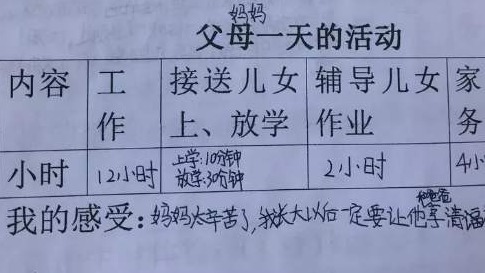 妈妈
父母一天的活动
内容 工作 接送儿女上、放学 辅导儿女作业 家务
小时 12小时 上学:10分钟 放学:30分钟 2小时 4小
和爸爸
我的感受:妈妈太辛苦了,我长大以后一定要让他享清福